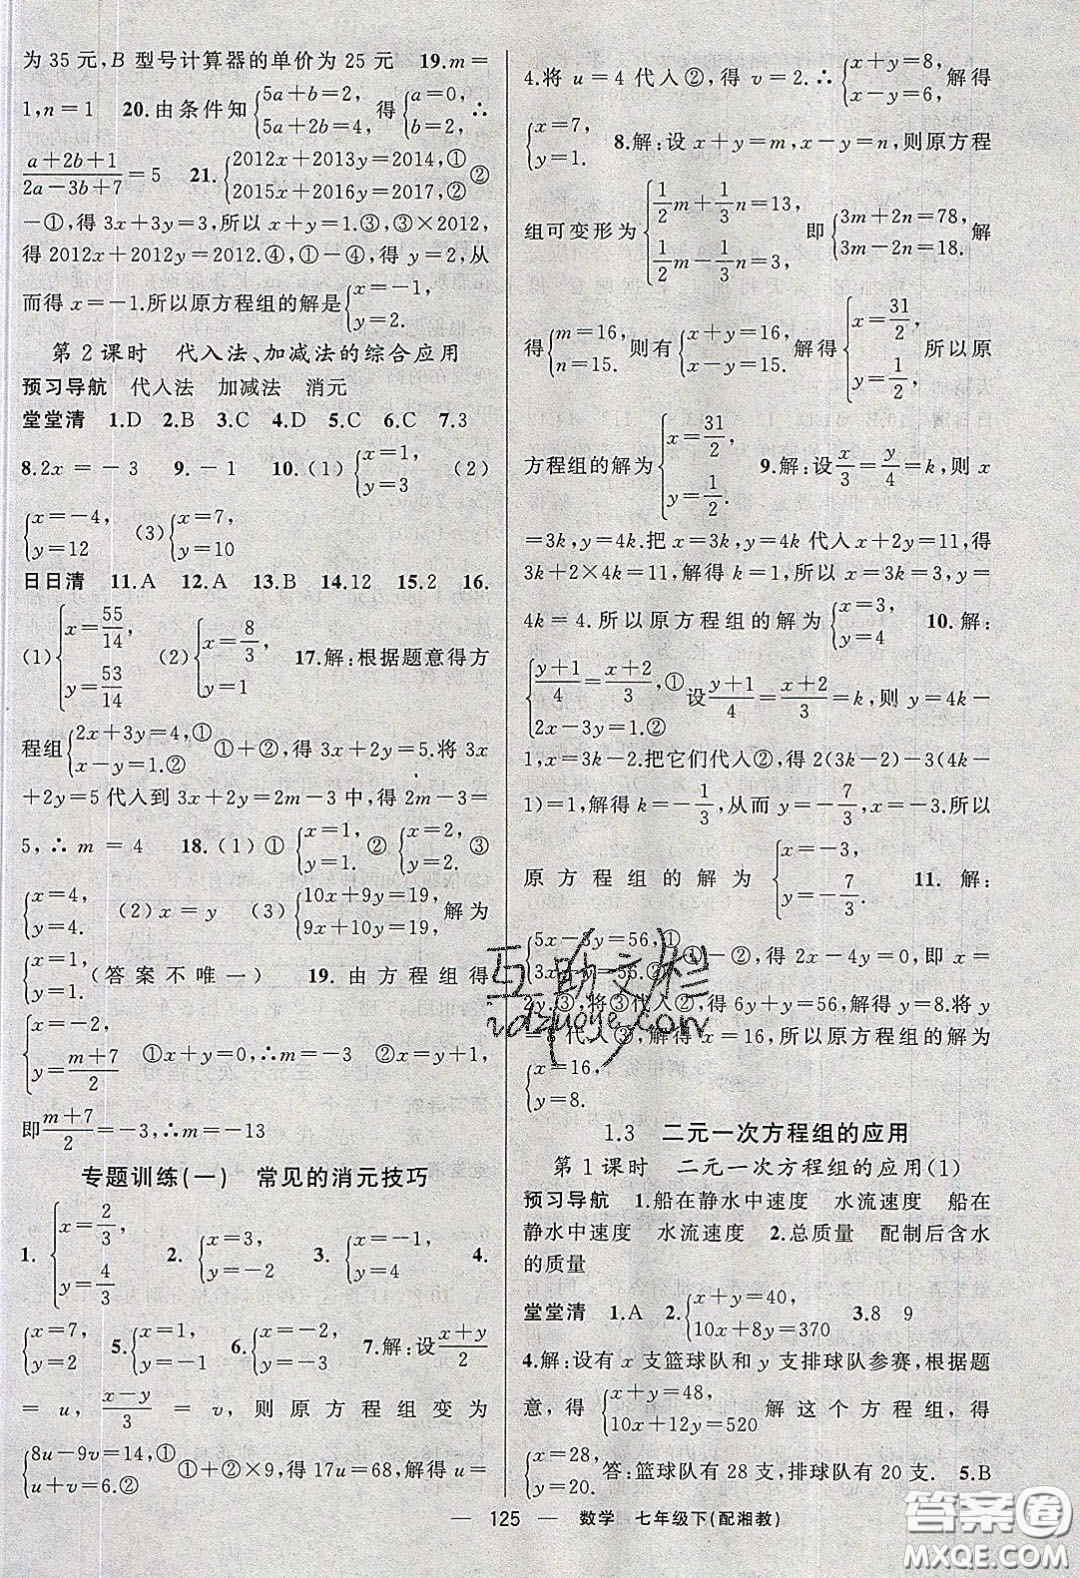 为 35 元,B 型号计算器的单价为 25 元　19.m=
1,n=1　20.由条件知{5a+b=2, 5a+2b=4, 得{a=0, b=2, ∴
(a+2b+1)/(2a-3b+7)=5　21.{2012x+2013y=2014,① 2015x+2016y=2017,② ②
-①,得 3x+3y=3,所以 x+y=1.③,③×2012,
得 2012x+2012y=2012.④,①-④,得 y=2,从
而得 x=-1.所以原方程组的解是{x=-1, y=2.
第 2 课时　代入法、加减法的综合应用
预习导航　代入法　加减法　消元
堂堂清　1.D　2.B　3.C　4.D　5.C　6.C　7.3
8.2x=-3　9.-1　10.(1){x=1, y=3　(2)
{x=-4, y=12　(3){x=7, y=10
日日清　11.A　12.A　13.B　14.12　15.2　16.
(1){x=55/14, y=53/14　(2){x=8/3, y=1　17.解:根据题意得方
程组{2x+3y=4,① x-y=1.② ①+②,得 3x+2y=5.将 3x
+2y=5 代入到 3x+2y=2m-3 中,得 2m-3=
5,∴m=4　18.(1)①{x=1, y=1. ②{x=2, y=2. ③
{x=4, y=4.　(2)x=y　(3){10x+9y=19, 9x+10y=19, 解为
{x=1, y=1.(答案不唯一)　19.由方程组得
{x=-2, y=(m+7)/2　①x+y=0,∴m=-3　②x=y+1,
即(m+7)/2=-3,∴m=-13
专题训练(一)　常见的消元技巧
1.{x=2/3, y=4/3　2.{x=3, y=-2　3.{x=-1, y=4　4.
{x=7, y=2　5.{x=1, y=1　6.{x=-2, y=-3　7.解:设(x+y)/2
=u,(x-y)/3=v,则原方程组变为
{8u-9v=14,① 2u+v=6.② ①+②×9,得 17u=68,解得 u=
4.将 u=4 代入②,得 v=2.∴{x+y=8, x-y=6, 解得
{x=7, y=1.　8.解:设 x+y=m,x-y=n,则原方程
组可变形为{1/2m+1/3n=13, 1/2m-1/3n=3, 即{3m+2n=78, 3m-2n=18, 解
得{m=16, n=15. 则有{x+y=16, x-y=15. 解得{x=31/2, y=1/2. 所以原
方程组的解为{x=31/2, y=1/2.　9.解:设x/3=y/4=k,则 x
=3k,y=4k.把 x=3k,y=4k 代入 x+2y=11,得
3k+2×4k=11,解得 k=1,所以 x=3k=3,y=
4k=4.所以原方程组的解为{x=3, y=4　10.解:
{(y+1)/4=(x+2)/3,① 2x-3y=1.② 设(y+1)/4=(x+2)/3=k,则 y=4k-
1,x=3k-2.把它们代入②,得 2(3k-2)-3(4k-
1)=1,解得 k=-1/3,从而 y=-7/3,x=-3.所以
原方程组的解为{x=-3, y=-7/3.　11.解:
{5x-3y=56,① ①-②,得 2x-4y=0,即 x=
2y.③,将③代入②,得 6y+y=56,解得 y=8.将 y
=8 代入③,解得 x=16,所以原方程组的解为
{x=16, y=8.
1.3　二元一次方程组的应用
第 1 课时　二元一次方程组的应用(1)
预习导航　1.船在静水中速度　水流速度　船在
静水中速度　水流速度　2.总质量　配制后含水
的质量
堂堂清　1.A　2.{x+y=40, 10x+8y=370　3.8　9
4.解:设有 x 支篮球队和 y 支排球队参赛,根据题
意,得{x+y=48, 10x+12y=520 解这个方程组,得
{x=28, y=20. 答:篮球队有 28 支,排球队有 20 支.　5.B
— 125 —　数学　七年级下(配湘教)
互助文栏
答案圈
MXQE.COM